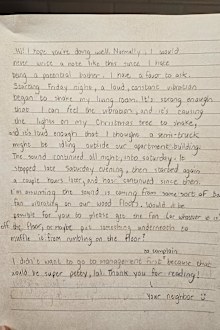 Hi! I hope you're doing well. Normally, I would
never write a note like this since I hate
being a potential bother. I have a favor to ask.
Starting Friday night, a loud, constant vibration
began to shake my living room. It's strong enough
that I can feel the vibration, and it's causing
the lights on my Christmas tree to shake,
and it's loud enough that I thought a semi-truck
might be idling outside our apartment building.
The sound continued all night, into Saturday. It
stopped late Saturday evening, then started again
a couple hours later, and has continued since then.
I'm assuming the sound is coming from some sort of
fan vibrating on our wood floors. Would it be
possible for you to please get the fan (or whatever it is)
off the floor, or maybe put something underneath to
muffle it from rumbling on the floor?
or complain
I didn't want to go to management first because that
would be super petty, lol. Thank you for reading!
Your neighbor ☺